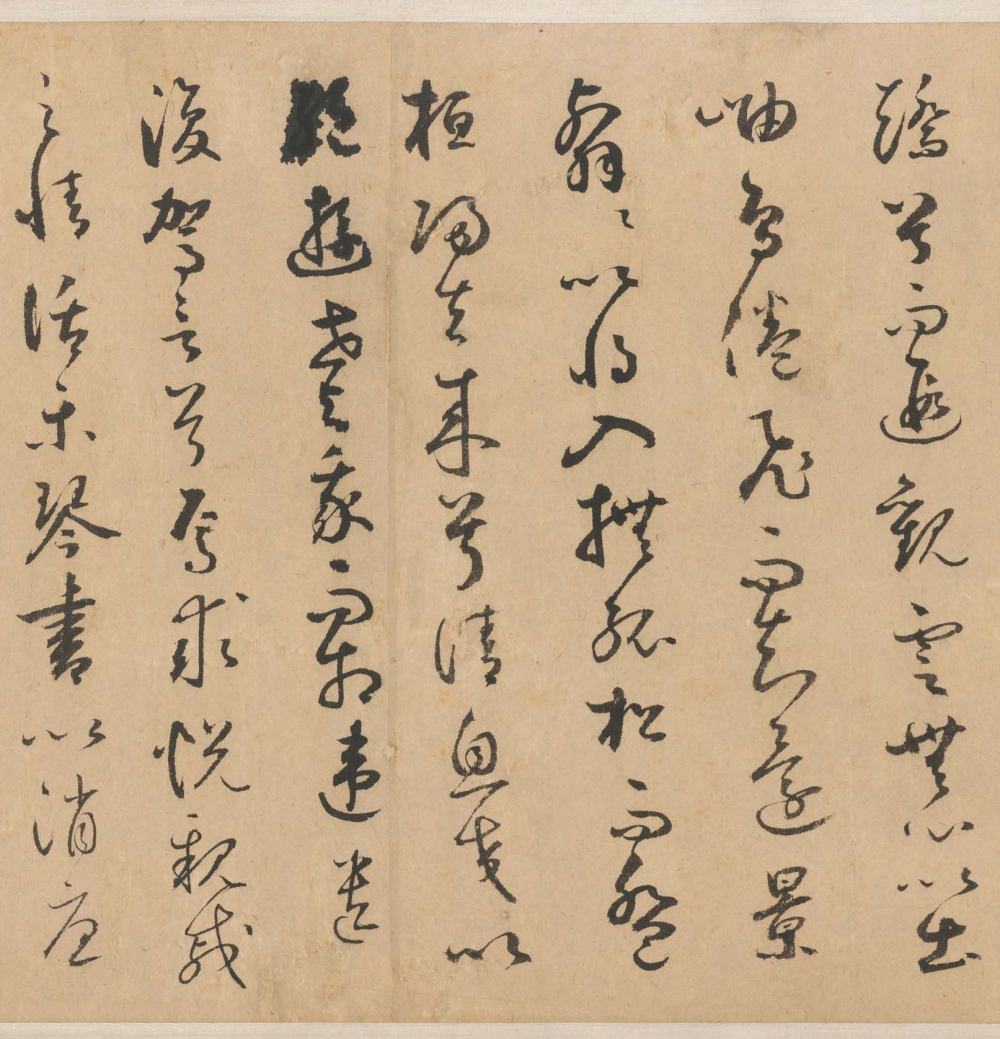 矯首而遐觀雲無心以出
岫鳥倦飛而知還景
翳〻以將入撫孤松而盤
桓歸去來兮請息交以
絕遊世與我而相違
復駕言兮焉求悅親戚
之情話樂琴書以消憂